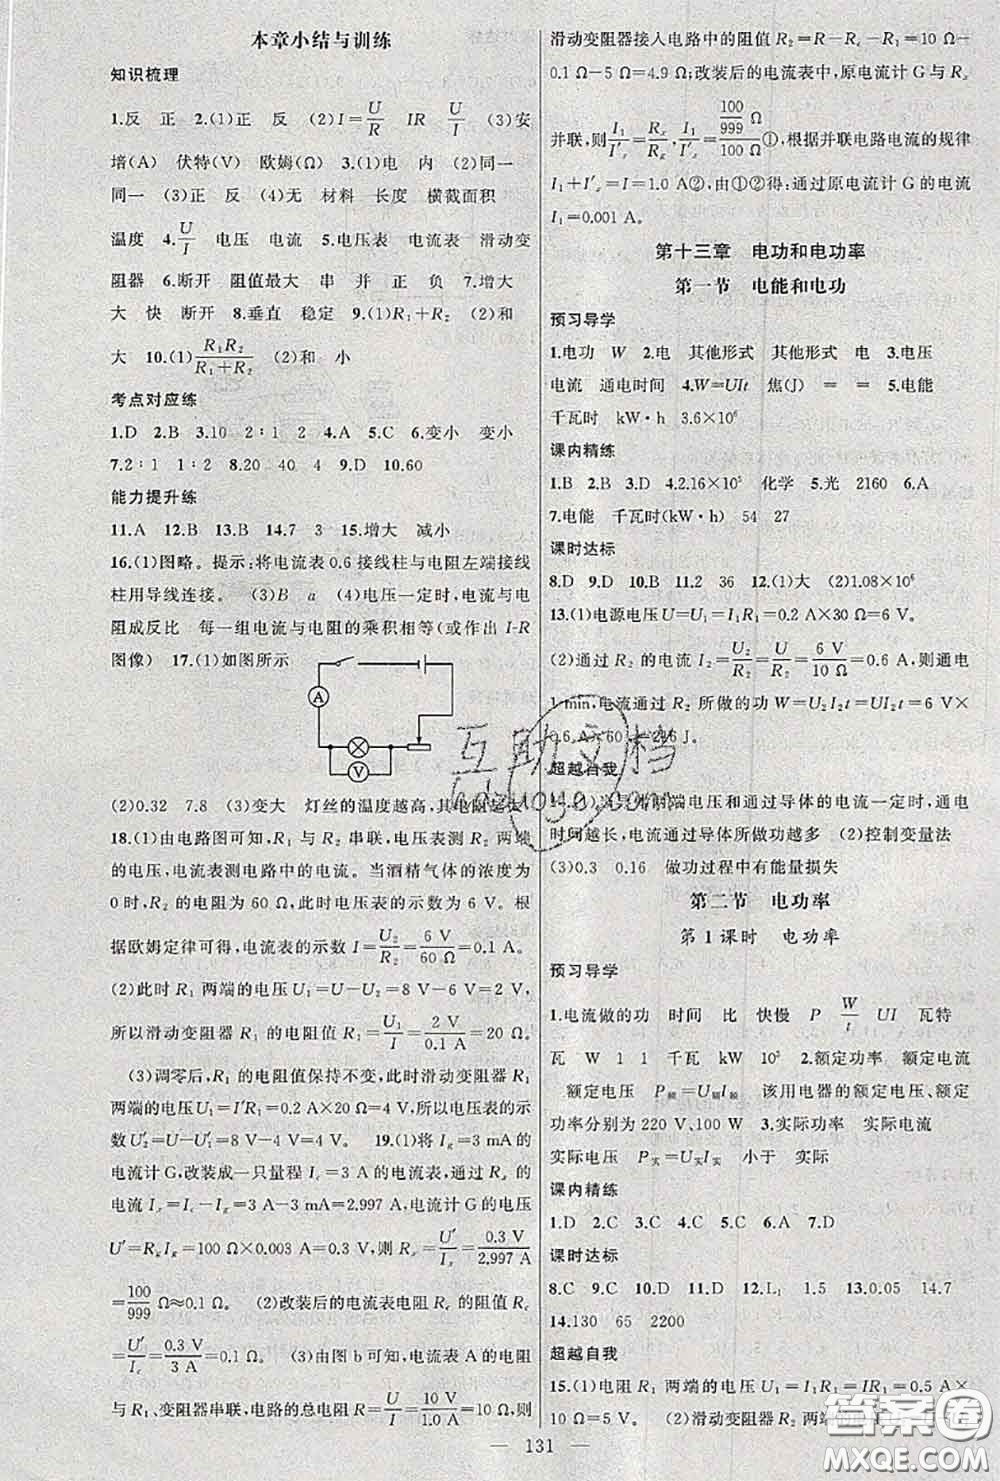 本章小结与训练
知识梳理
1.反 正 2.(1)正 反 (2)I=U/R IR U/I (3)安
培(A) 伏特(V) 欧姆(Ω) 3.(1)电 内 (2)同一
同一 (3)正 反 (4)无 材料 长度 横截面积
温度 4.U/I 电压 电流 5.电压表 电流表 滑动变
阻器 6.断开 阻值最大 串 并 正 负 7.增大
大 快 断开 8.垂直 稳定 9.(1)R₁+R₂ (2)和
大 10.(1)R₁R₂/(R₁+R₂) (2)和 小
考点对应练
1.D 2.B 3.10 2∶1 2 4.A 5.C 6.变小 变小
7.2∶1 1∶2 8.20 40 4 9.D 10.60
能力提升练
11.A 12.B 13.B 14.7 3 15.增大 减小
16.(1)图略。提示:将电流表0.6接线柱与电阻左端接线
柱用导线连接。 (3)B a (4)电压一定时,电流与电
阻成反比 每一组电流与电阻的乘积相等(或作出 I-R
图像) 17.(1)如图所示
A
V
(2)0.32 7.8 (3)变大 灯丝的温度越高,其电阻越大
18.(1)由电路图可知,R₁ 与 R₂ 串联,电压表测 R₂ 两端
的电压,电流表测电路中的电流。当酒精气体的浓度为
0时,R₂ 的电阻为 60 Ω,此时电压表的示数为 6 V。根
据欧姆定律可得,电流表的示数 I=U₂/R₂=6 V/60 Ω=0.1 A。
(2)此时 R₁ 两端的电压 U₁=U-U₂=8 V-6 V=2 V,
所以滑动变阻器 R₁ 的电阻值 R₁=U₁/I=2 V/0.1 A=20 Ω。
(3)调零后,R₁ 的电阻值保持不变,此时滑动变阻器 R₁
两端的电压U′₁=I′R₁=0.2 A×20 Ω=4 V,所以电压表的示
数U′₂=U-U′₁=8 V-4 V=4 V。 19.(1)将 Ig=3 mA的
电流计G,改装成一只量程 Ic=3 A的电流表,通过 Rx 的
电流 Ix=Ic-Ig=3 A-3 mA=2.997 A,电流计G的电压
U′=RgIg=100 Ω×0.003 A=0.3 V,则 Rx=U′/Ix=0.3 V/2.997 A
=100/999 Ω≈0.1 Ω。 (2)改装后的电流表电阻 Rc 的阻值 Rc
=U′/Ic=0.3 V/3 A=0.1 Ω。 (3)由图b可知,电流表A的电阻
与R₁、变阻器串联,电路的总电阻 R=U/I=10 V/1.0 A=10 Ω,则
滑动变阻器接入电路中的阻值 R₂=R-Rc-R₁=10 Ω-
0.1 Ω-5 Ω=4.9 Ω;改装后的电流表中,原电流计G与 Rx
并联,则 I₁/I′x=Rx/Rg,I₁/I′x=(100/999 Ω)/100 Ω①,根据并联电路电流的规律
I₁+I′x=I=1.0 A②,由①②得:通过原电流计G的电流
I₁=0.001 A。
第十三章 电功和电功率
第一节 电能和电功
预习导学
1.电功 W 2.电 其他形式 其他形式 电 3.电压
电流 通电时间 4.W=UIt 焦(J) = = 5.电能
千瓦时 kW·h 3.6×10⁶
课内精练
1.B 2.B 3.D 4.2.16×10⁵ 化学 5.光 2160 6.A
7.电能 千瓦时(kW·h) 54 27
课时达标
8.D 9.D 10.B 11.2 36 12.(1)大 (2)1.08×10⁶
13.(1)电源电压 U=U₁=I₁R₁=0.2 A×30 Ω=6 V。
(2)通过 R₂ 的电流 I₂=U₂/R₂=U/R₂=6 V/10 Ω=0.6 A,则通电
1 min,电流通过 R₂ 所做的功 W=U₂I₂t=UI₂t=6 V×
0.6 A×60 s=216 J。
超越自我
当导体两端电压和通过导体的电流一定时,通电
时间越长,电流通过导体所做功越多 (2)控制变量法
(3)0.3 0.16 做功过程中有能量损失
第二节 电功率
第1课时 电功率
预习导学
1.电流做的功 时间 比 快慢 P W/t UI 瓦特
瓦 W 1 1 千瓦 kW 10³ 2.额定功率 额定电流
额定电压 P额=U额I额 该用电器的额定电压、额定
功率分别为 220 V、100 W 3.实际功率 实际电流
实际电压 P实=U实I实 小于 实际
课内精练
1.D 2.C 3.C 4.D 5.C 6.A 7.D
课时达标
8.C 9.C 10.D 11.D 12.L₁ 1.5 13.0.05 14.7
14.130 65 2200
超越自我
15.(1)电阻 R₁ 两端的电压 U₁=I₁R₁=IR₁=0.5 A×
10 Ω=5 V。 (2)滑动变阻器 R₂ 两端的
— 131 —
互助文档
hdzuoye.com
答案圈
MXQE.COM